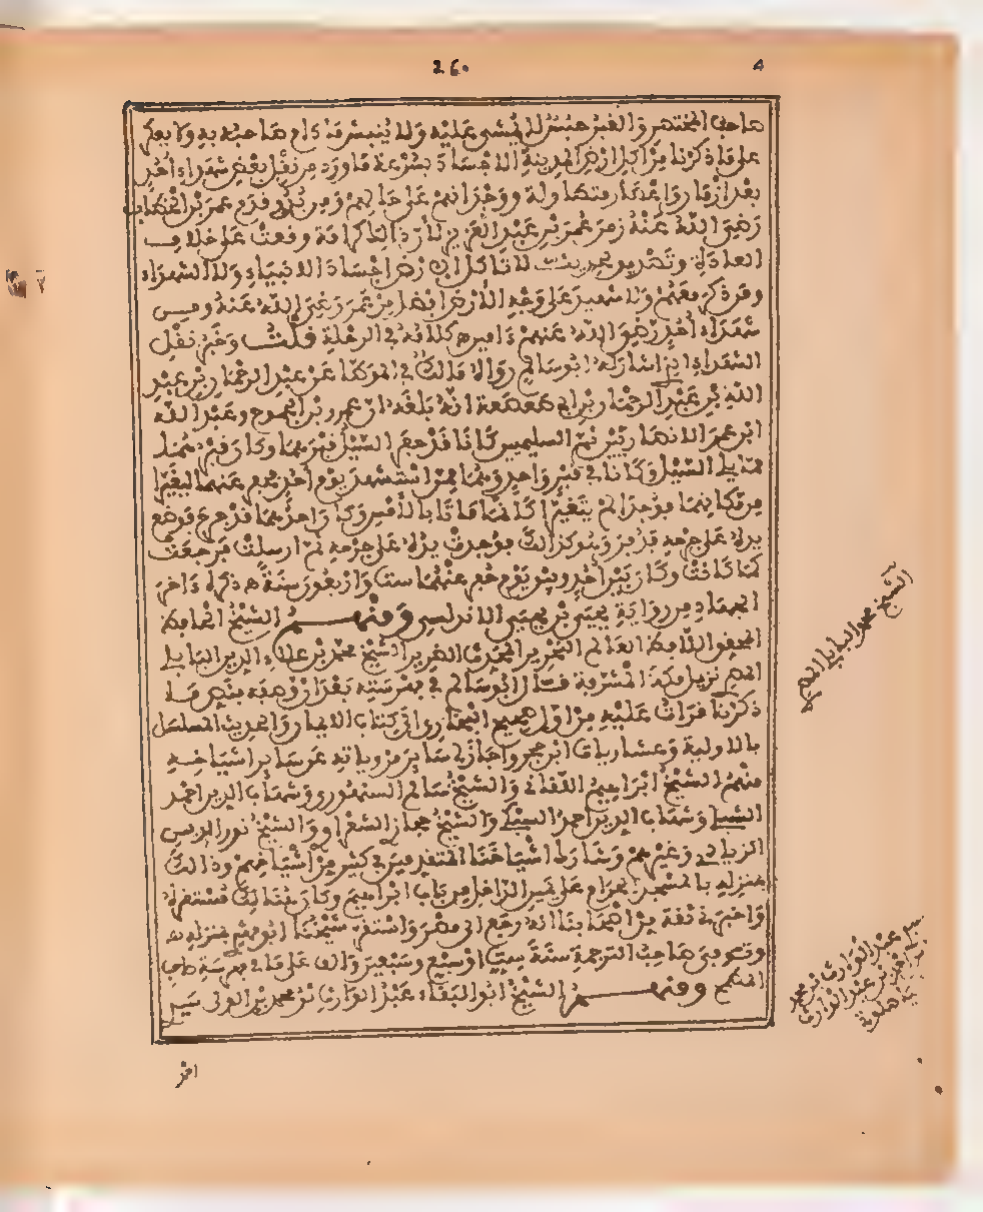 260
صاحب المختصر والقبر حبس لا يمشى عليه ولا ينبش ما دام صاحبه به ولا يعلم
على ما ذكرنا من اكل ارض المدينة الاجساد بسرعة ما ورد من نقل بعض شهداء احد
بعد ازمان واعصار متطاولة ووجدانهم على حالهم ومن بدو قدم عمر بن الخطاب
رضي الله عنه زمن عمر بن عبد العزيز لان ذلك كرامة وقعت على خلاف
العادة وتخصيص بحديث لا تاكل الارض اجساد الانبياء ولا الشهداء
وقد ذكر معهم ولا شهيد على وجه الارض افضل من عمر رضي الله عنه ومن
شهداء احد رضي الله عنهم كلامه في الرحلة قلت وخبر نقل
الشهداء الذي اشار له ابو سالم رواه مالك في الموطا عن عبد الرحمان بن عبد
الله بن عبد الرحمان بن ابي صعصعة انه بلغه ان عمرو بن الجموح وعبد الله
ابن عمر الانصاريين ثم السلميين كانا قد حفر السيل قبرهما وكان قبرهما
مما يلي السيل وكانا في قبر واحد وهما ممن استشهد يوم احد فحفر عنهما ليغيرا
من مكانهما فوجدا لم يتغيرا كانما ماتا بالامس وكان احدهما قد جرح فوضع
يده على جرحه فدفن وهو كذلك فاميطت يده على جرحه ثم ارسلت فرجعت
كما كانت وكان بين احد وبين يوم حفر عنهما ست واربعون سنة ه ذكره اخر
الجهاد من رواية يحيى بن يحيى الاندلسي ومنهم الشيخ الحافظ
المحقق اللافظ العالم النحرير المحدث الضرير الشيخ محمد بن علاء الدين البابلي
المصري نزيل مكة المشرفة قال ابو سالم في فهرسته بعد ان وصفه ببعض ما
ذكرنا قرات عليه من اول صحيح البخاري الى كتاب الايمان والحديث المسلسل
بالاولية وعشاريات ابن حجر واجازني سائر مروياته عن سائر اشياخه
منهم الشيخ ابراهيم اللقاني والشيخ سالم السنهوري وشهاب الدين احمد
الشبلي وشهاب الدين احمد السبكي والشيخ حجازي الشعراوي والشيخ نور الدين
الزيادي وغيرهم وشارك اشياخنا المتقدمين في كثير من اشياخهم وذلك
بمنزله بالمسجد الحرام على يمين الداخل من باب ابراهيم وكان هنالك مستقره
واخبرني ثقة من اصحابنا انه رجع الى مصر واستقر شيخنا ابو مهدي بمنزله ه
وتوفي صاحب الترجمة سنة ست او سبع وسبعين والف على ما في فهرسة
ومنهم الشيخ ابو البقاء عبد الوارث بن محمد بن الولي سيدي
الشيخ محمد البابلي المصري
سيدي عبد الوارث بن محمد
بن عبد الوارث